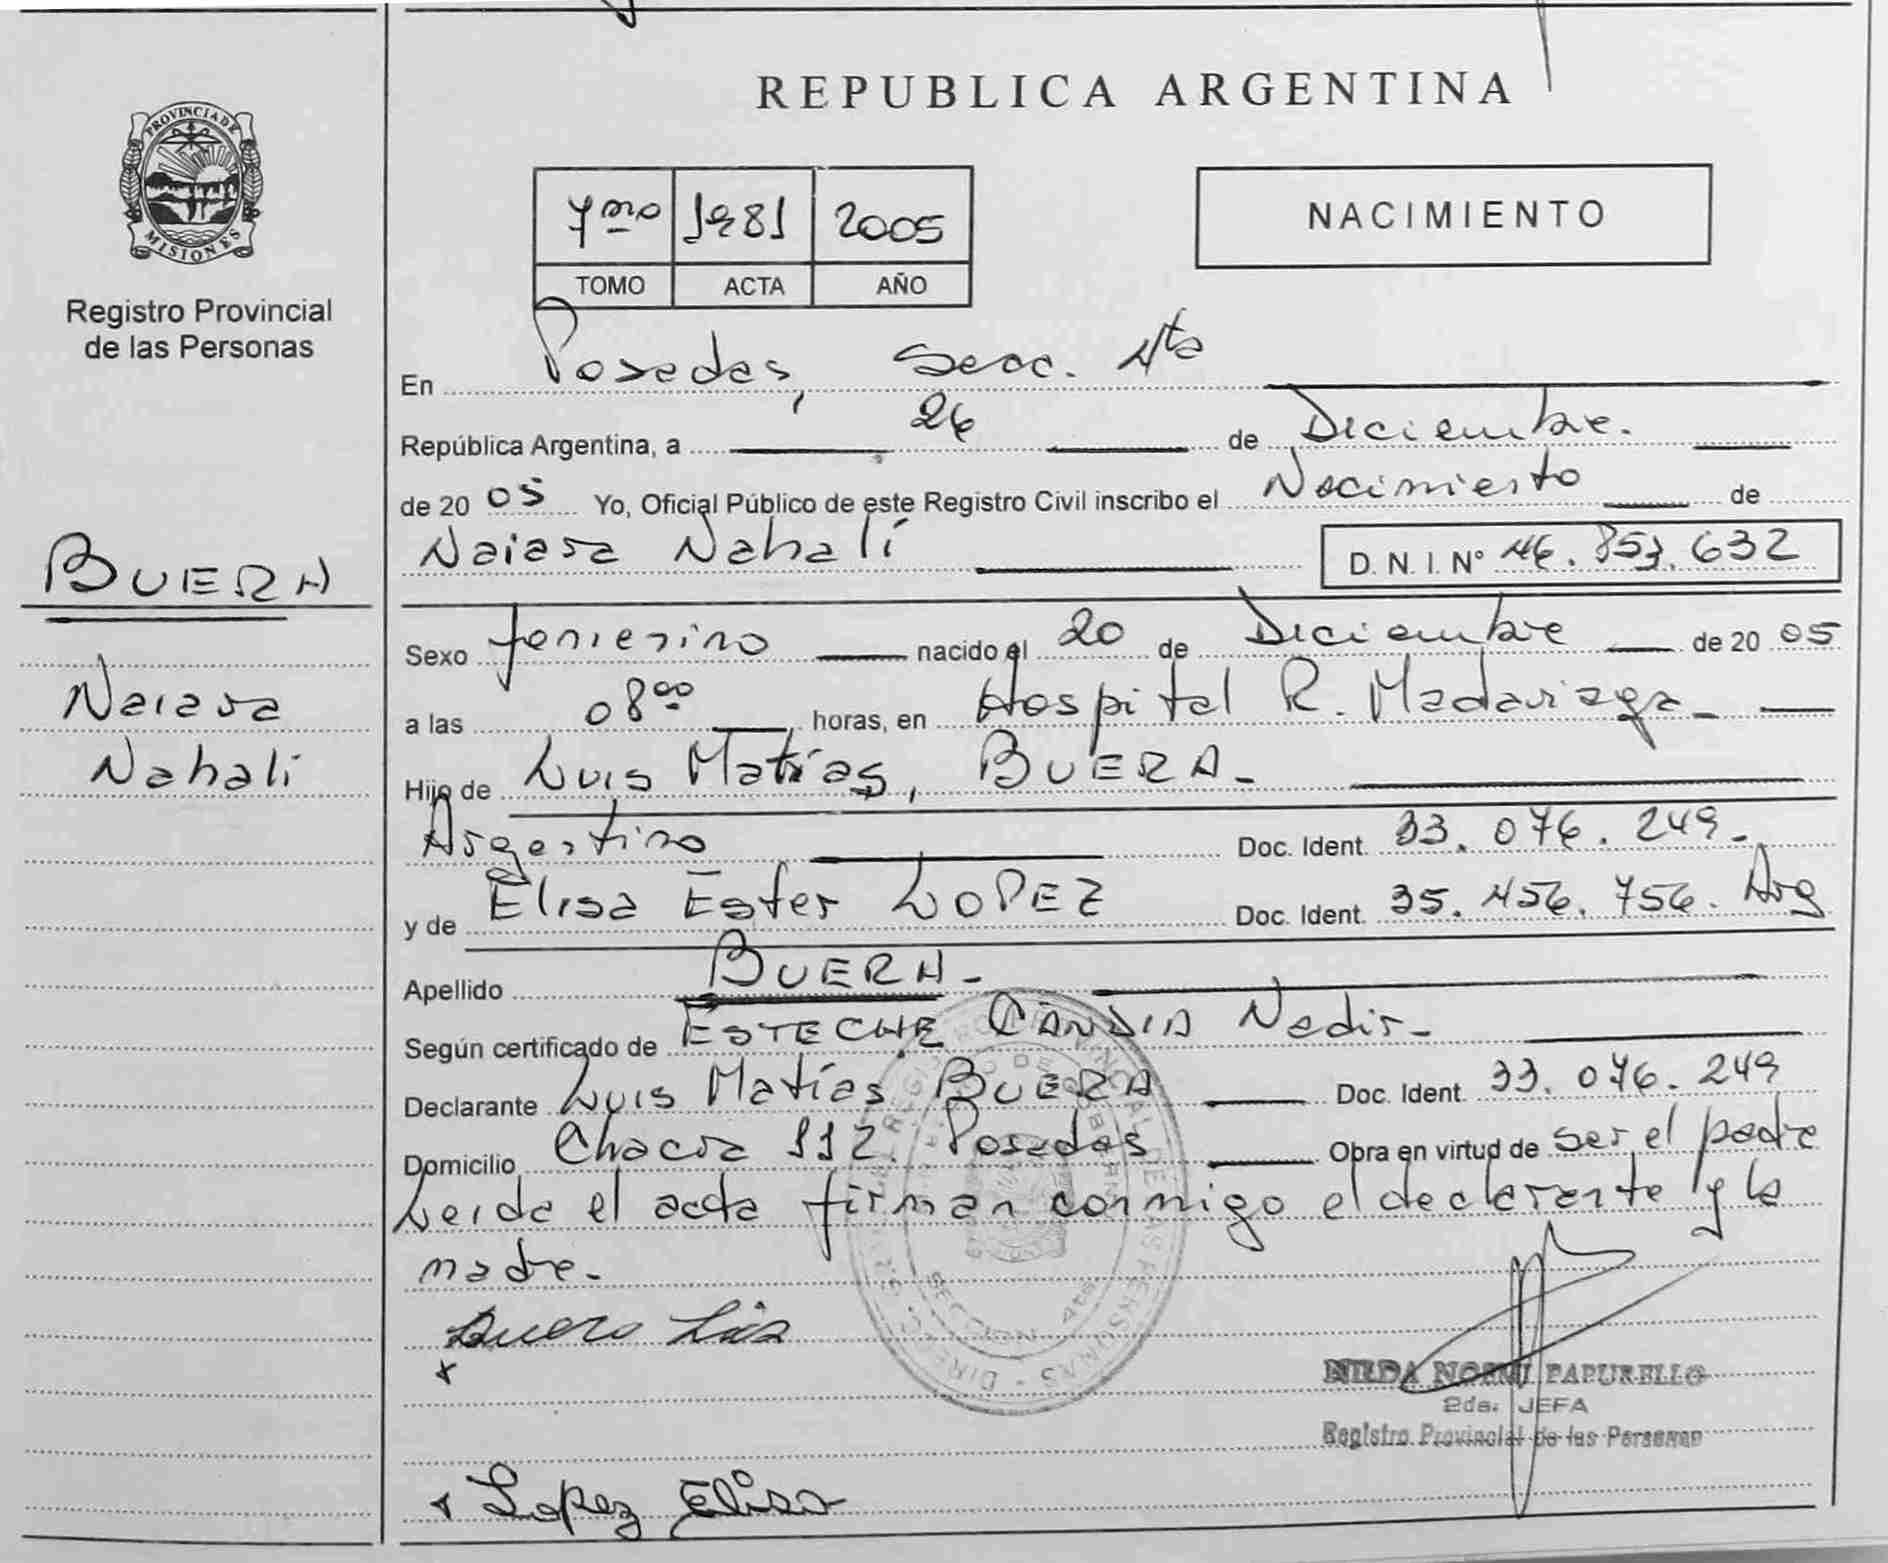 PROVINCIA DE
MISIONES
Registro Provincial
de las Personas
BUERA
Naiara
Nahalí
REPUBLICA ARGENTINA
7mo 1981 2005
TOMO ACTA AÑO
NACIMIENTO
En Posadas, Secc. 4ta
República Argentina, a 26 de Diciembre.
de 20 05 Yo, Oficial Público de este Registro Civil inscribo el Nacimiento de
Naiara Nahalí D. N. I. N° 46.853.632
Sexo femenino nacido el 20 de Diciembre de 20 05
a las 08:00 horas, en Hospital R. Madariaga
Hijo de Luis Matías, BUERA-
Argentino Doc. Ident. 33.076.249-
y de Elisa Ester LOPEZ Doc. Ident. 35.456.756. Arg
Apellido BUERA-
Según certificado de ESTECHE CANDIA Nadir-
Declarante Luis Matías BUERA Doc. Ident. 33.076.249
Domicilio Chacra 112. Posadas Obra en virtud de ser el padre
Leida el acta firman conmigo el declarante y la
madre-
Buera Luis
x
NILDA NOEMI PAPURELLO
2da. JEFA
Registro Provincial de las Personas
x Lopez Elisa